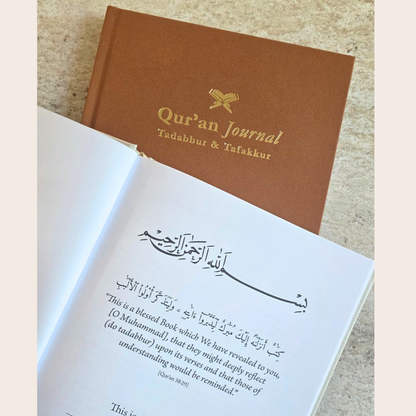 Qur'an Journal
Tadabbur & Tafakkur
بسم الله الرحمن الرحيم
كِتَٰبٌ أَنزَلْنَٰهُ إِلَيْكَ مُبَٰرَكٌ لِّيَدَّبَّرُوٓا۟ ءَايَٰتِهِۦ وَلِيَتَذَكَّرَ أُو۟لُوا۟ ٱلْأَلْبَٰبِ
"This is a blessed Book which We have revealed to you,
[O Muhammad], that they might deeply reflect
(do tadabbur) upon its verses and that those of
understanding would be reminded."
[Qur'an 38:29]
This is